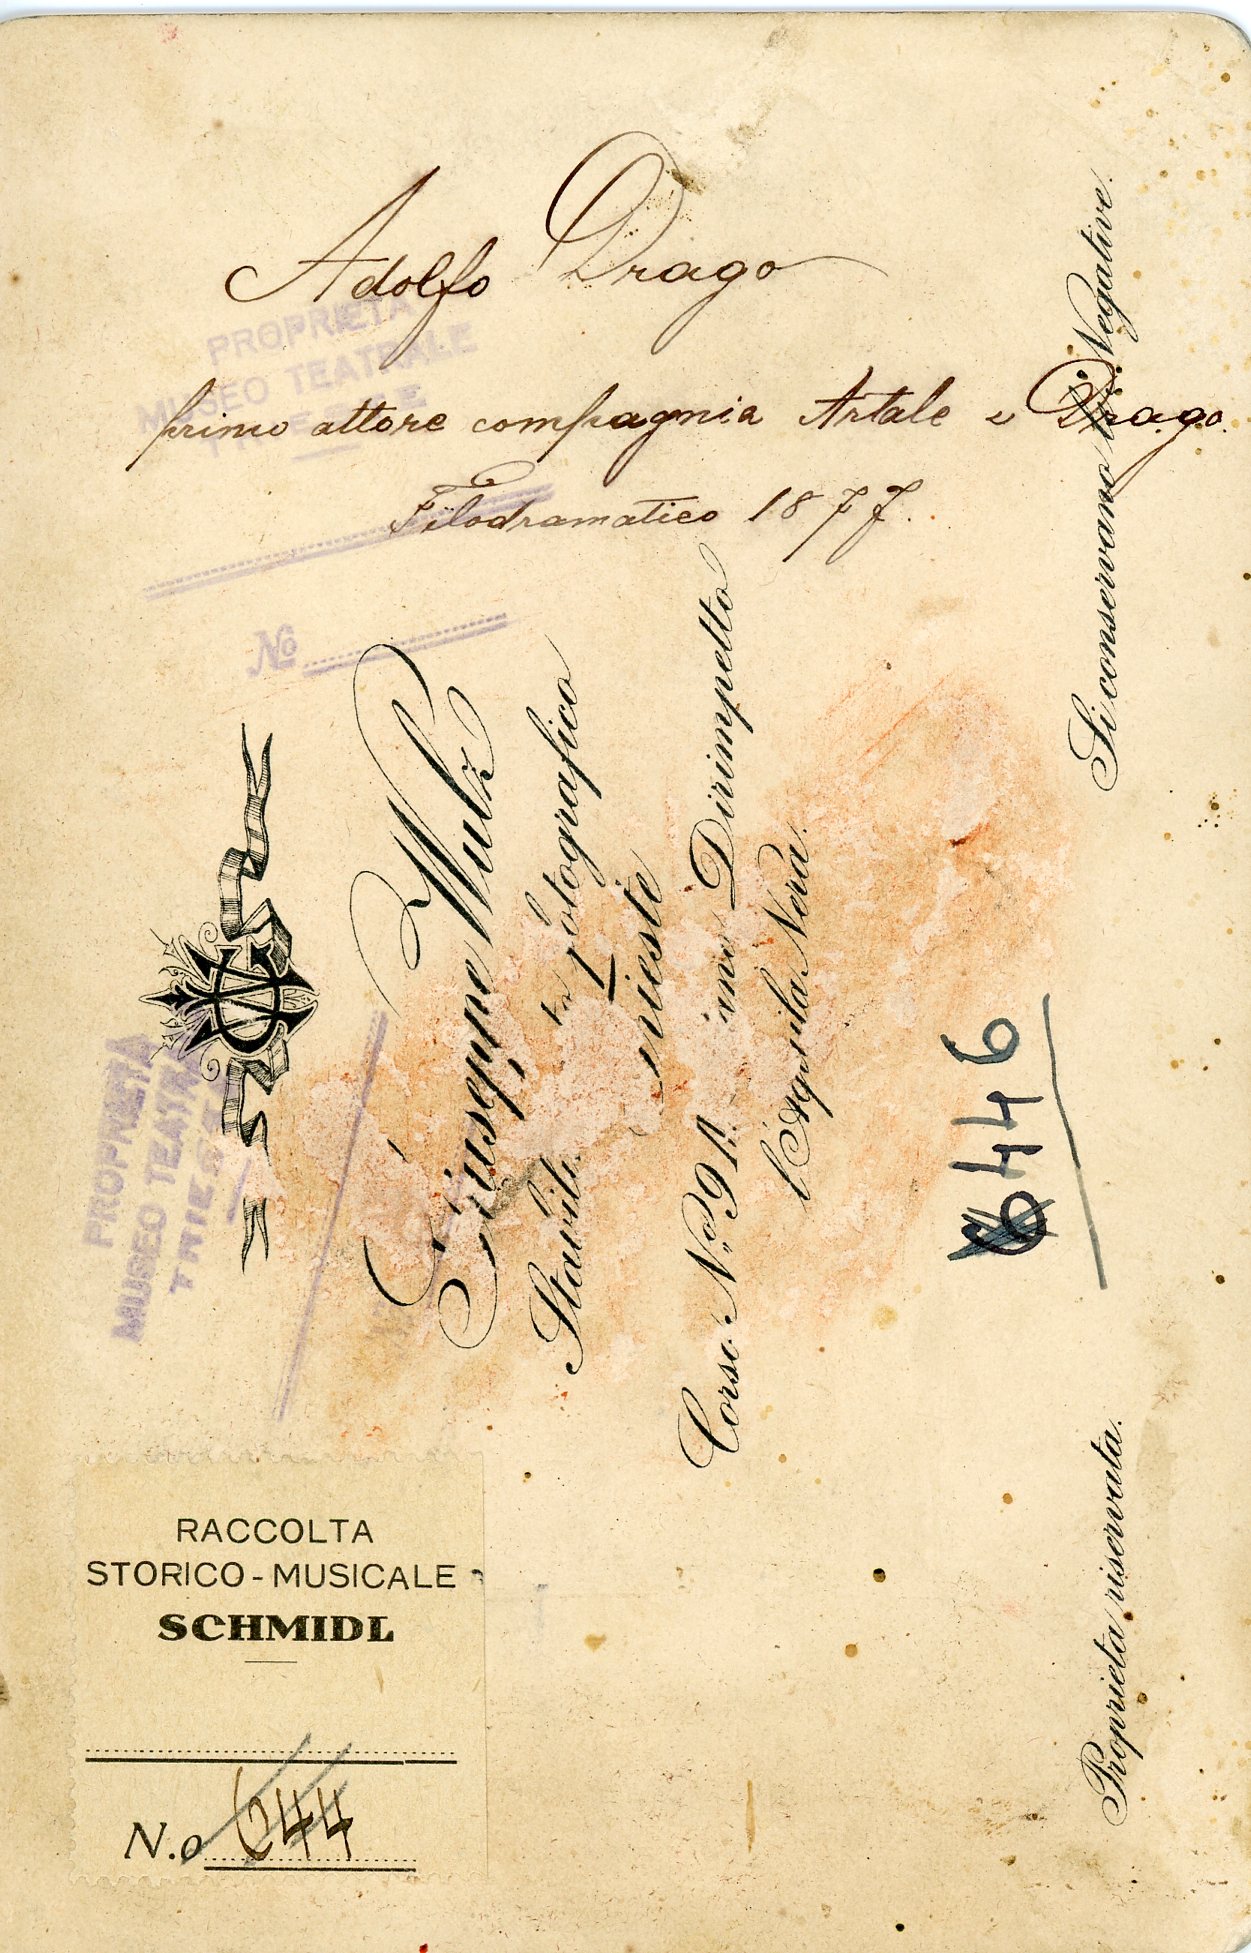 Adolfo Drago
primo attore compagnia Artale e Drago.
Filodramatico 1877.
PROPRIETÀ
MUSEO TEATRALE
TRIESTE
No
Giuseppe Wulz
Stabili. to Fotografico
Trieste
Corso No. 9 P. Dirimpetto
l'Aquila Nera.
Si conservano le Negative.
Proprieta riservata.
PROPRIETÀ
MUSEO TEATRA
TRIESTE
6446
RACCOLTA
STORICO-MUSICALE
SCHMIDL
N.o 644